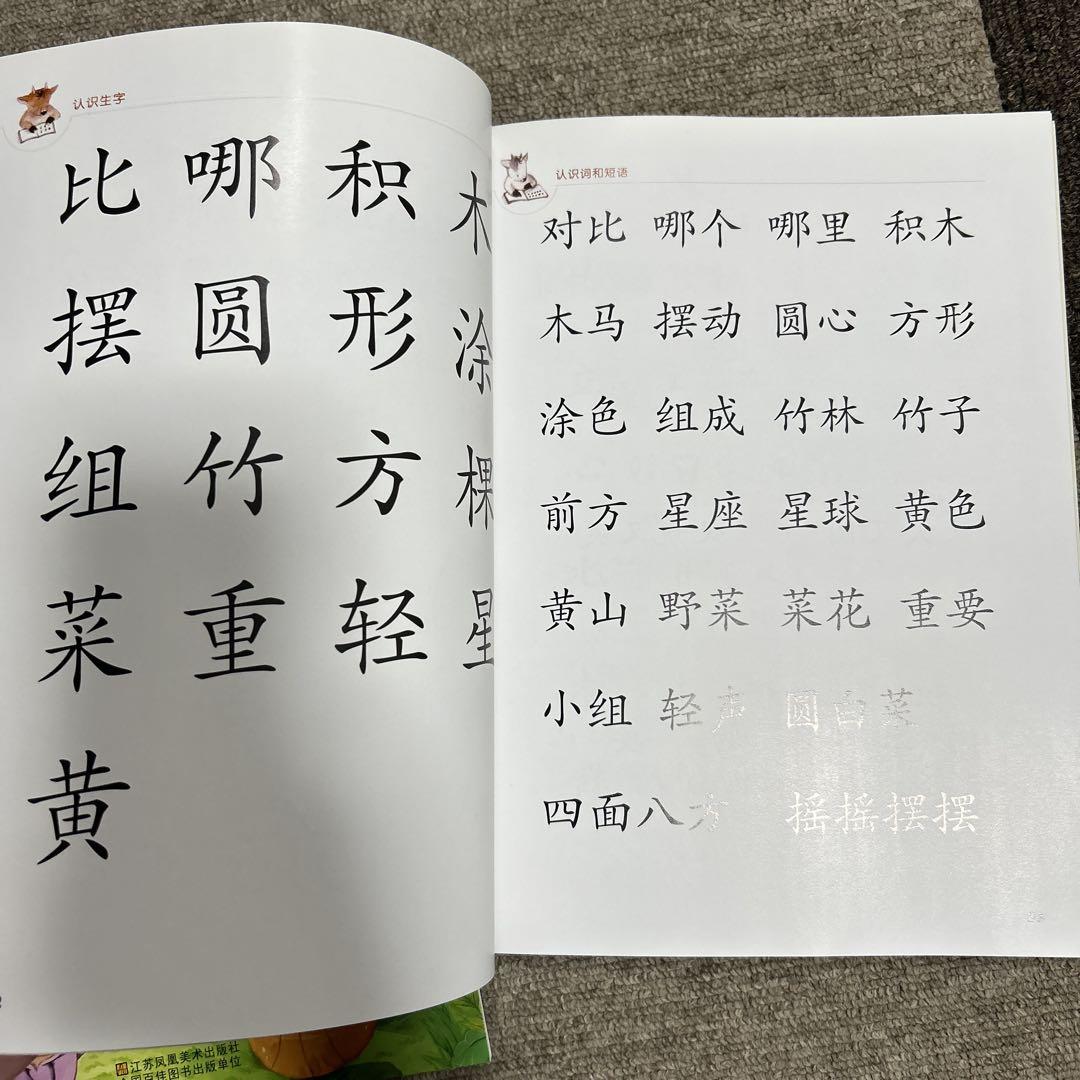 认识生字
比 哪 积 木
摆 圆 形 涂
组 竹 方 棵
菜 重 轻 星
黄
认识词和短语
对比 哪个 哪里 积木
木马 摆动 圆心 方形
涂色 组成 竹林 竹子
前方 星座 星球 黄色
黄山 野菜 菜花 重要
小组 轻声 圆白菜
四面八方 摇摇摆摆
江苏凤凰美术出版社
全国百佳图书出版单位